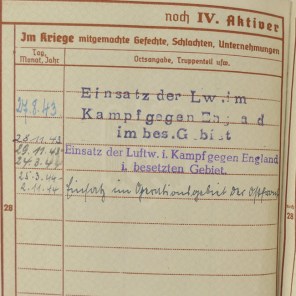 noch IV. Aktiver
Im Kriege mitgemachte Gefechte, Schlachten, Unternehmungen
Tag, Monat, Jahr
Ortsangabe, Truppenteil usw.
Einsatz der Lw. im
24.8.43 Kampf gegen England
im bes. Gebiet
28.11.43
29.11.43 Einsatz der Luftw. i. Kampf gegen England
24.3.44 i. besetzten Gebiet.
25.3.44-
2.11.44 Einsatz im Operationsgebiet der Ostfront
28